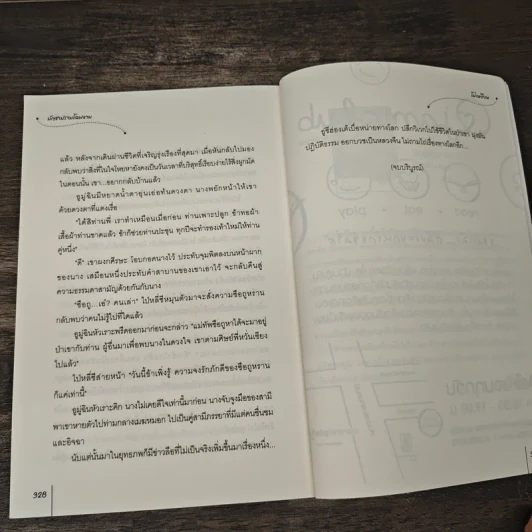 แล้ว หลังจากเดินผ่านชีวิตที่เจริญรุ่งเรืองที่สุดมา เมื่อหันกลับไปมอง
กลับพบว่าสิ่งที่ในใจโหยหายังคงเป็นวันเวลาที่บริสุทธิ์เรียบง่ายไร้สิ่งผูกมัด
ในตอนนั้น เขา...อยากกลับบ้านแล้ว
ซูมู่ฉินมีหยาดน้ำตาอุ่นเอ่อท้นดวงตา นางพยักหน้าให้เขา
ด้วยดวงตาที่แดงเรื่อ
"ได้สิท่านพี่ เราทำเหมือนเมื่อก่อน ท่านเพาะปลูก ข้าทอผ้า
เสื้อผ้าท่านขาดแล้ว ข้าก็ช่วยท่านปะชุน ทุกปีจะทำรองเท้าใหม่ให้ท่าน
คู่หนึ่ง"
"ดี" เขาผงกศีรษะ โอบกอดนางไว้ ประทับจุมพิตลงบนหน้าผาก
ของนาง เสมือนหนึ่งประทับคำสาบานของเขาเอาไว้ จะกลับคืนสู่
ความธรรมดาสามัญด้วยกันกับนาง
"ซือถู...เอ๋? คนเล่า" ไป๋หลี่ซีหมุนตัวมาจะสั่งความซือถูหราน
กลับพบว่าคนไม่รู้ไปที่ใดแล้ว
ซูมู่ฉินหัวเราะพรืดออกมาก่อนจะกล่าว "แม่ทัพซือถูหาได้จะมาอยู่
ป่าเขากับท่าน ผู้อื่นมาเพื่อพบนางในดวงใจ เขาตามศิษย์พี่หวั่นเชียง
ไปแล้ว"
ไป๋หลี่ซีส่ายหน้า "วันนี้ข้าเพิ่งรู้ ความจงรักภักดีของซือถูหราน
ก็แค่เท่านี้"
ซูมู่ฉินหัวเราะคิก นางไม่เคยดีใจเท่านี้มาก่อน นางจับจูงมือของสามี
พาเขาหายตัวไปท่ามกลางเมฆหมอก ไปเป็นคู่สามีภรรยาที่มีแต่คนชื่นชม
และอิจฉา
นับแต่นั้นมาในยุทธภพก็มีข่าวลือที่ไม่เป็นจริงเพิ่มขึ้นมาเรื่องหนึ่ง...
328
ซูซีฮ่องเต้เบื่อหน่ายทางโลก ปลีกวิเวกไปใช้ชีวิตในป่าเขา มุ่งมั่น
ปฏิบัติธรรม ออกบวชเป็นหลวงจีน ไม่ถามไถ่เรื่องทางโลกอีก...
(จบบริบูรณ์)